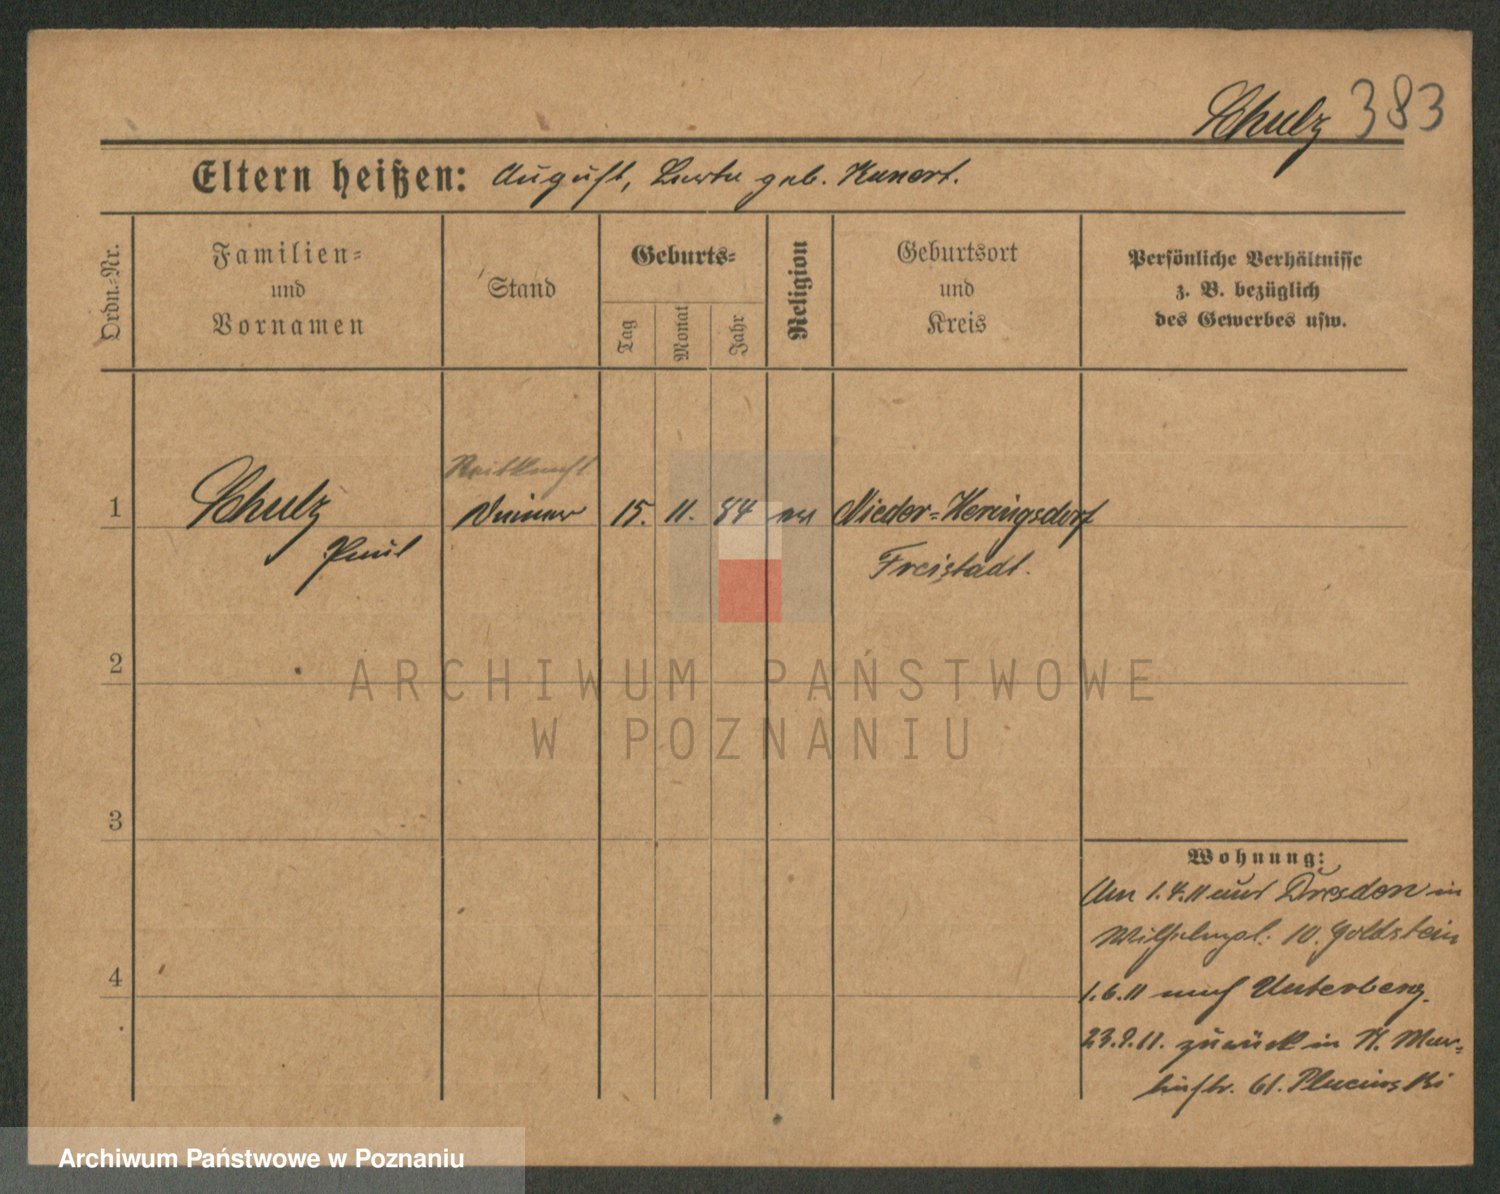 Schulz 383
Eltern heißen: August, Berta geb. Kunert.
Ordn.-Nr.
Familien- und Vornamen
Stand
Geburts-
Tag
Monat
Jahr
Religion
Geburtsort und Kreis
Persönliche Verhältnisse
z. B. bezüglich
des Gewerbes usw.
Reitknecht
1 Schulz Diener 15. 11. 84 ev Nieder-Heringsdorf
Paul Freistadt.
2
ARCHIWUM PAŃSTWOWE
W POZNANIU
3
Wohnung:
Am 1.4.11 aus Dresden in
Wilhelmpl. 10. Goldstein
4
1.6.11 nach Unterberg.
23.9.11. zurück in St. Mar-
tinstr. 61. Plucinski
Archiwum Państwowe w Poznaniu